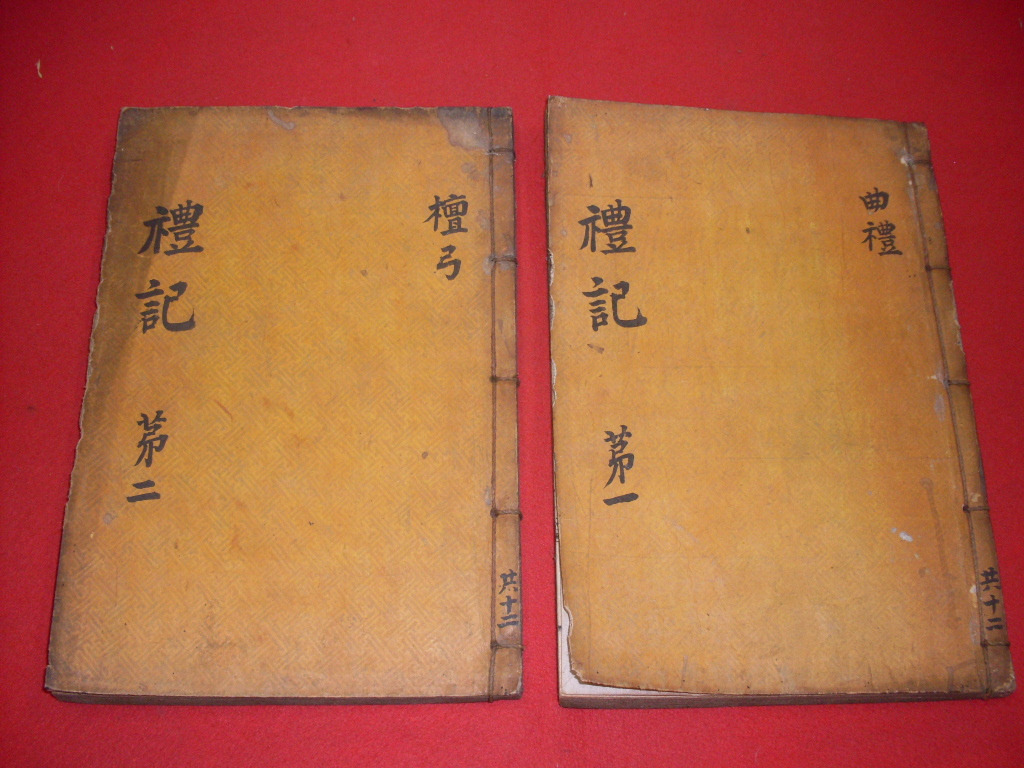 曲禮
禮記 苐一
共十二
檀弓
禮記 苐二
共十二